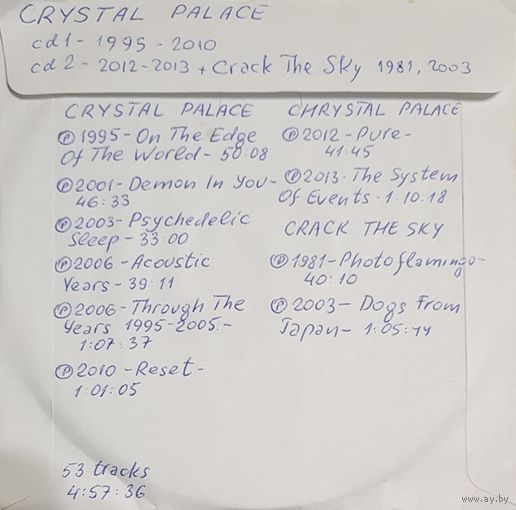 CRYSTAL PALACE
cd1 - 1995 - 2010
cd2 - 2012-2013 + Crack The Sky 1981, 2003
CRYSTAL PALACE
℗ 1995 - On The Edge
Of The World - 50:08
℗ 2001 - Demon In You -
46:33
℗ 2003 - Psychedelic
Sleep - 33:00
℗ 2006 - Acoustic
Years - 39:11
℗ 2006 - Through The
Years 1995-2005. -
1:07:37
℗ 2010 - Reset -
1:01:05
53 tracks
4:57:36
CHRYSTAL PALACE
℗ 2012 - Pure -
41:45
℗ 2013 - The System
Of Events - 1:10:18
CRACK THE SKY
℗ 1981 - Photoflamingo -
40:10
℗ 2003 - Dogs From
Japan - 1:05:44
www.ay.by